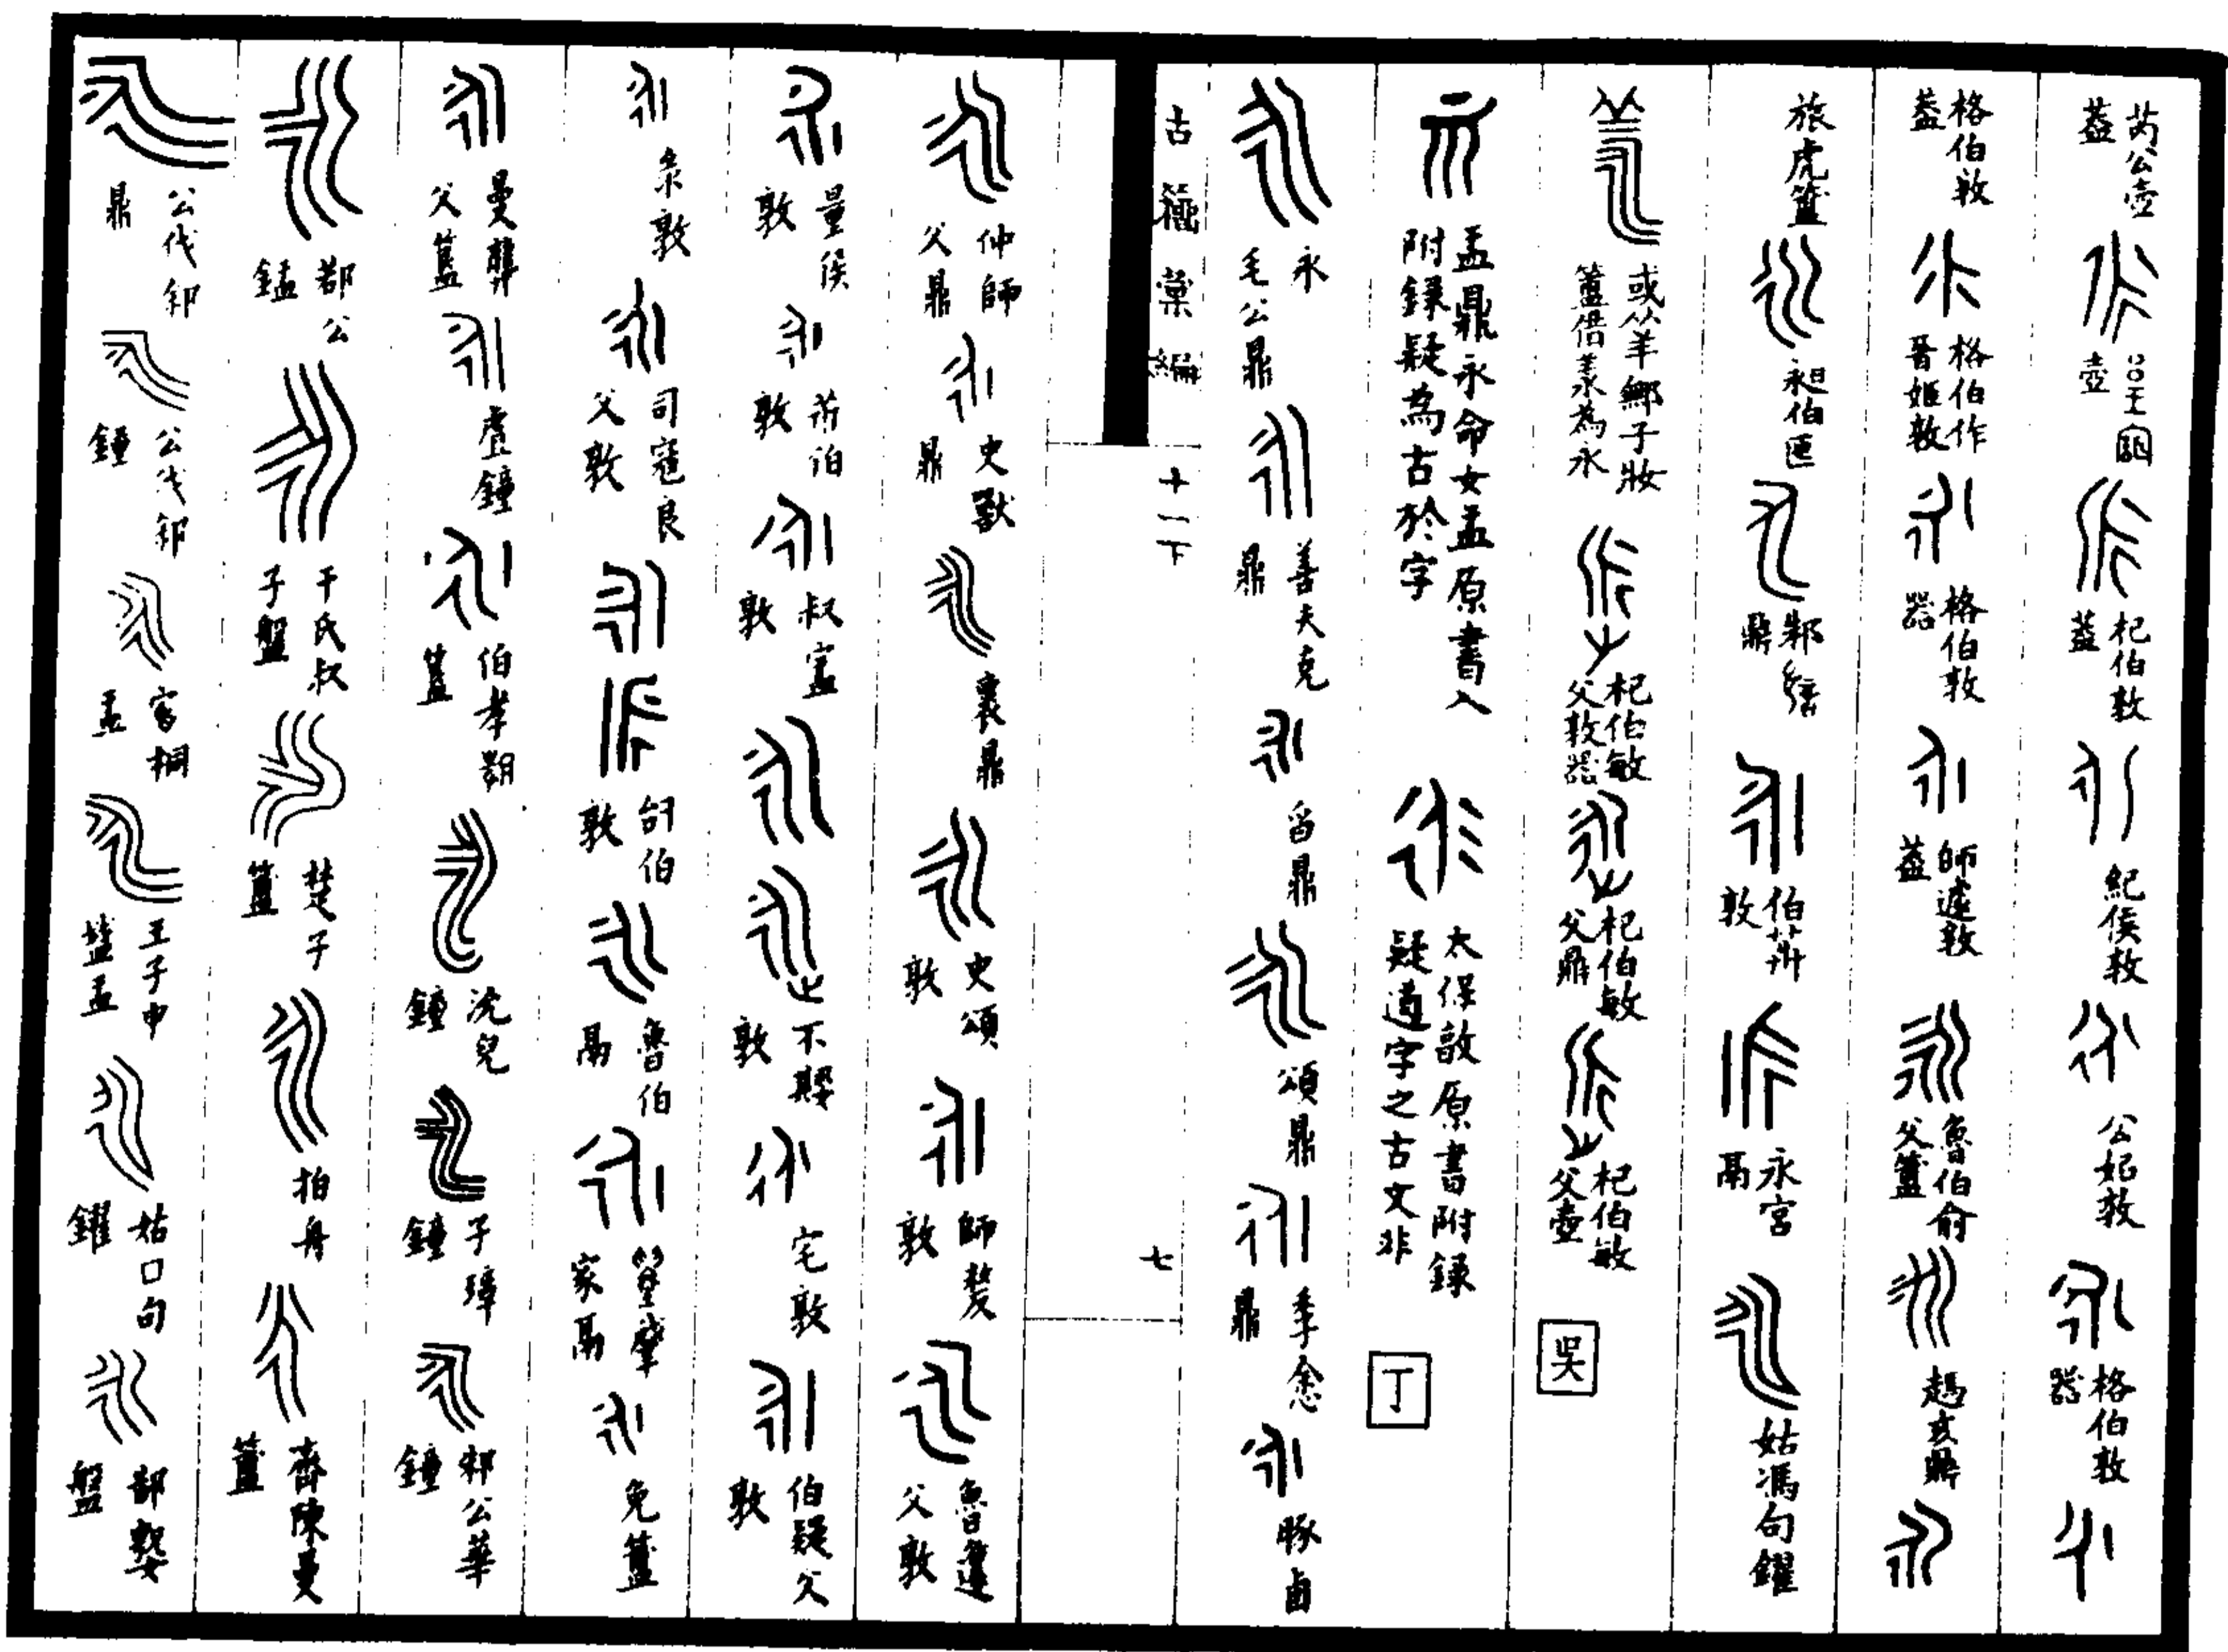 芮公壺蓋 壺 杞伯敦蓋 紀侯敦 公妃敦 格伯敦器
格伯敦蓋 格伯作晉姬敦 格伯敦器 師遽敦蓋 魯伯俞父簠 趞亥鼎
旅虎簠 永 伯匜 邾 鼎 伯 敦 永宮鬲 姑馮句鑃
或从羊鄦子妝簠借羕為永 杞伯敏父敦器 杞伯敏父鼎 杞伯敏父壺 吳
盂鼎永命女盂原書入附錄疑為古於字 太保敦原書附錄疑道字之古文非 丁
永 毛公鼎 善夫克鼎 舀鼎 頌鼎 季悆鼎 豚卣
古籀彙編 十一下 七
仲師父鼎 史獸鼎 襄鼎 史頌敦 師嫠敦 魯 父敦
量侯敦 芾伯敦 叔 敦 不㛗敦 宅敦 伯疑父敦
彔敦 司寇良父敦 伯敦 魯伯鬲 肇家鬲 免簠
曼龔父簠 虘鐘 伯孝 簠 沇兒鐘 子璋鐘 邾公華鐘
鄀公 干氏叔子盤 楚子簠 拍舟 齊陳曼簠
公伐郐鼎 公伐郐鐘 宜桐盂 王子申盞盂 姑口句鑃 盤